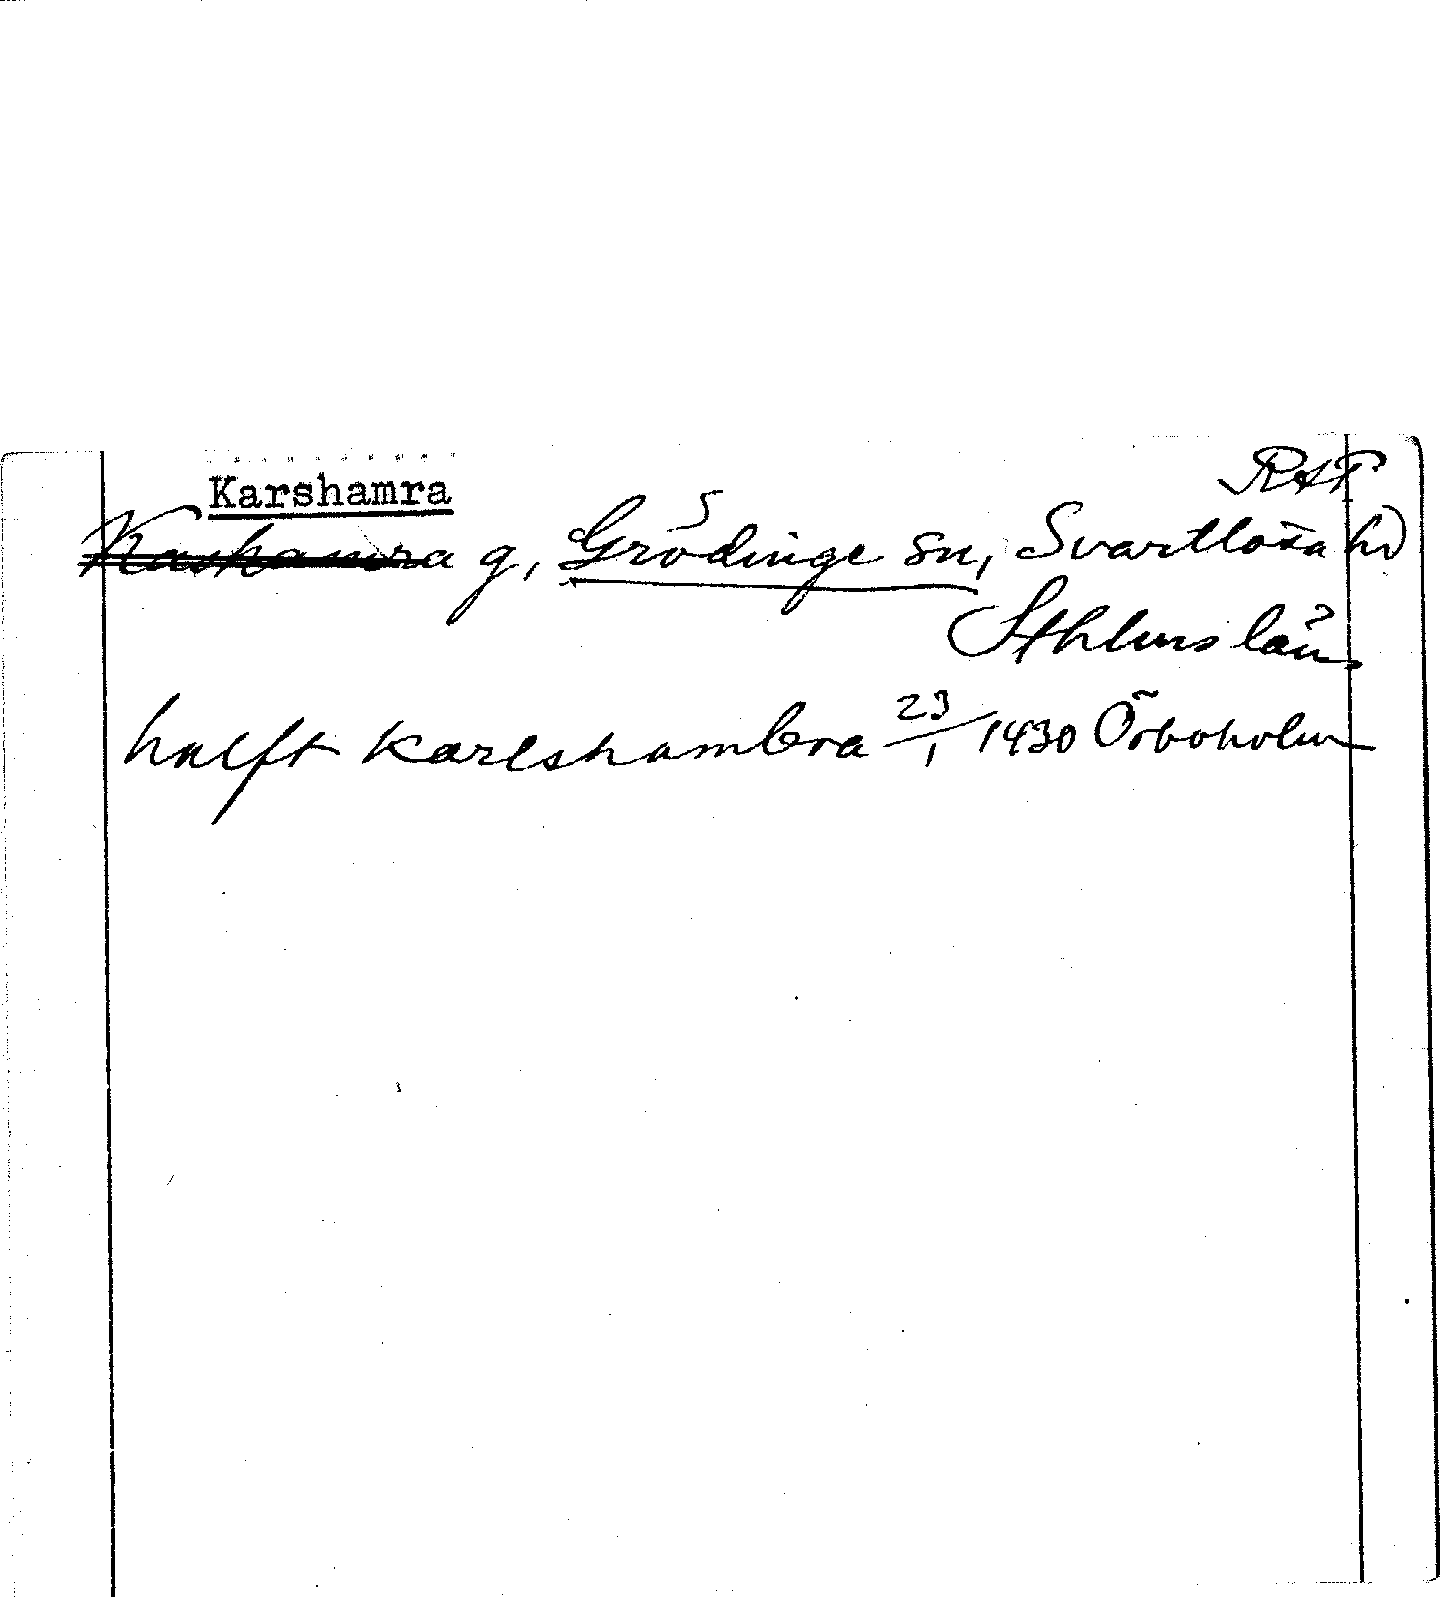 RAP
Karshamra
Karshamra g, Grödinge sn, Svartlösa hd
Sthlms län
halft karlshambra 23/1 1430 Örboholm